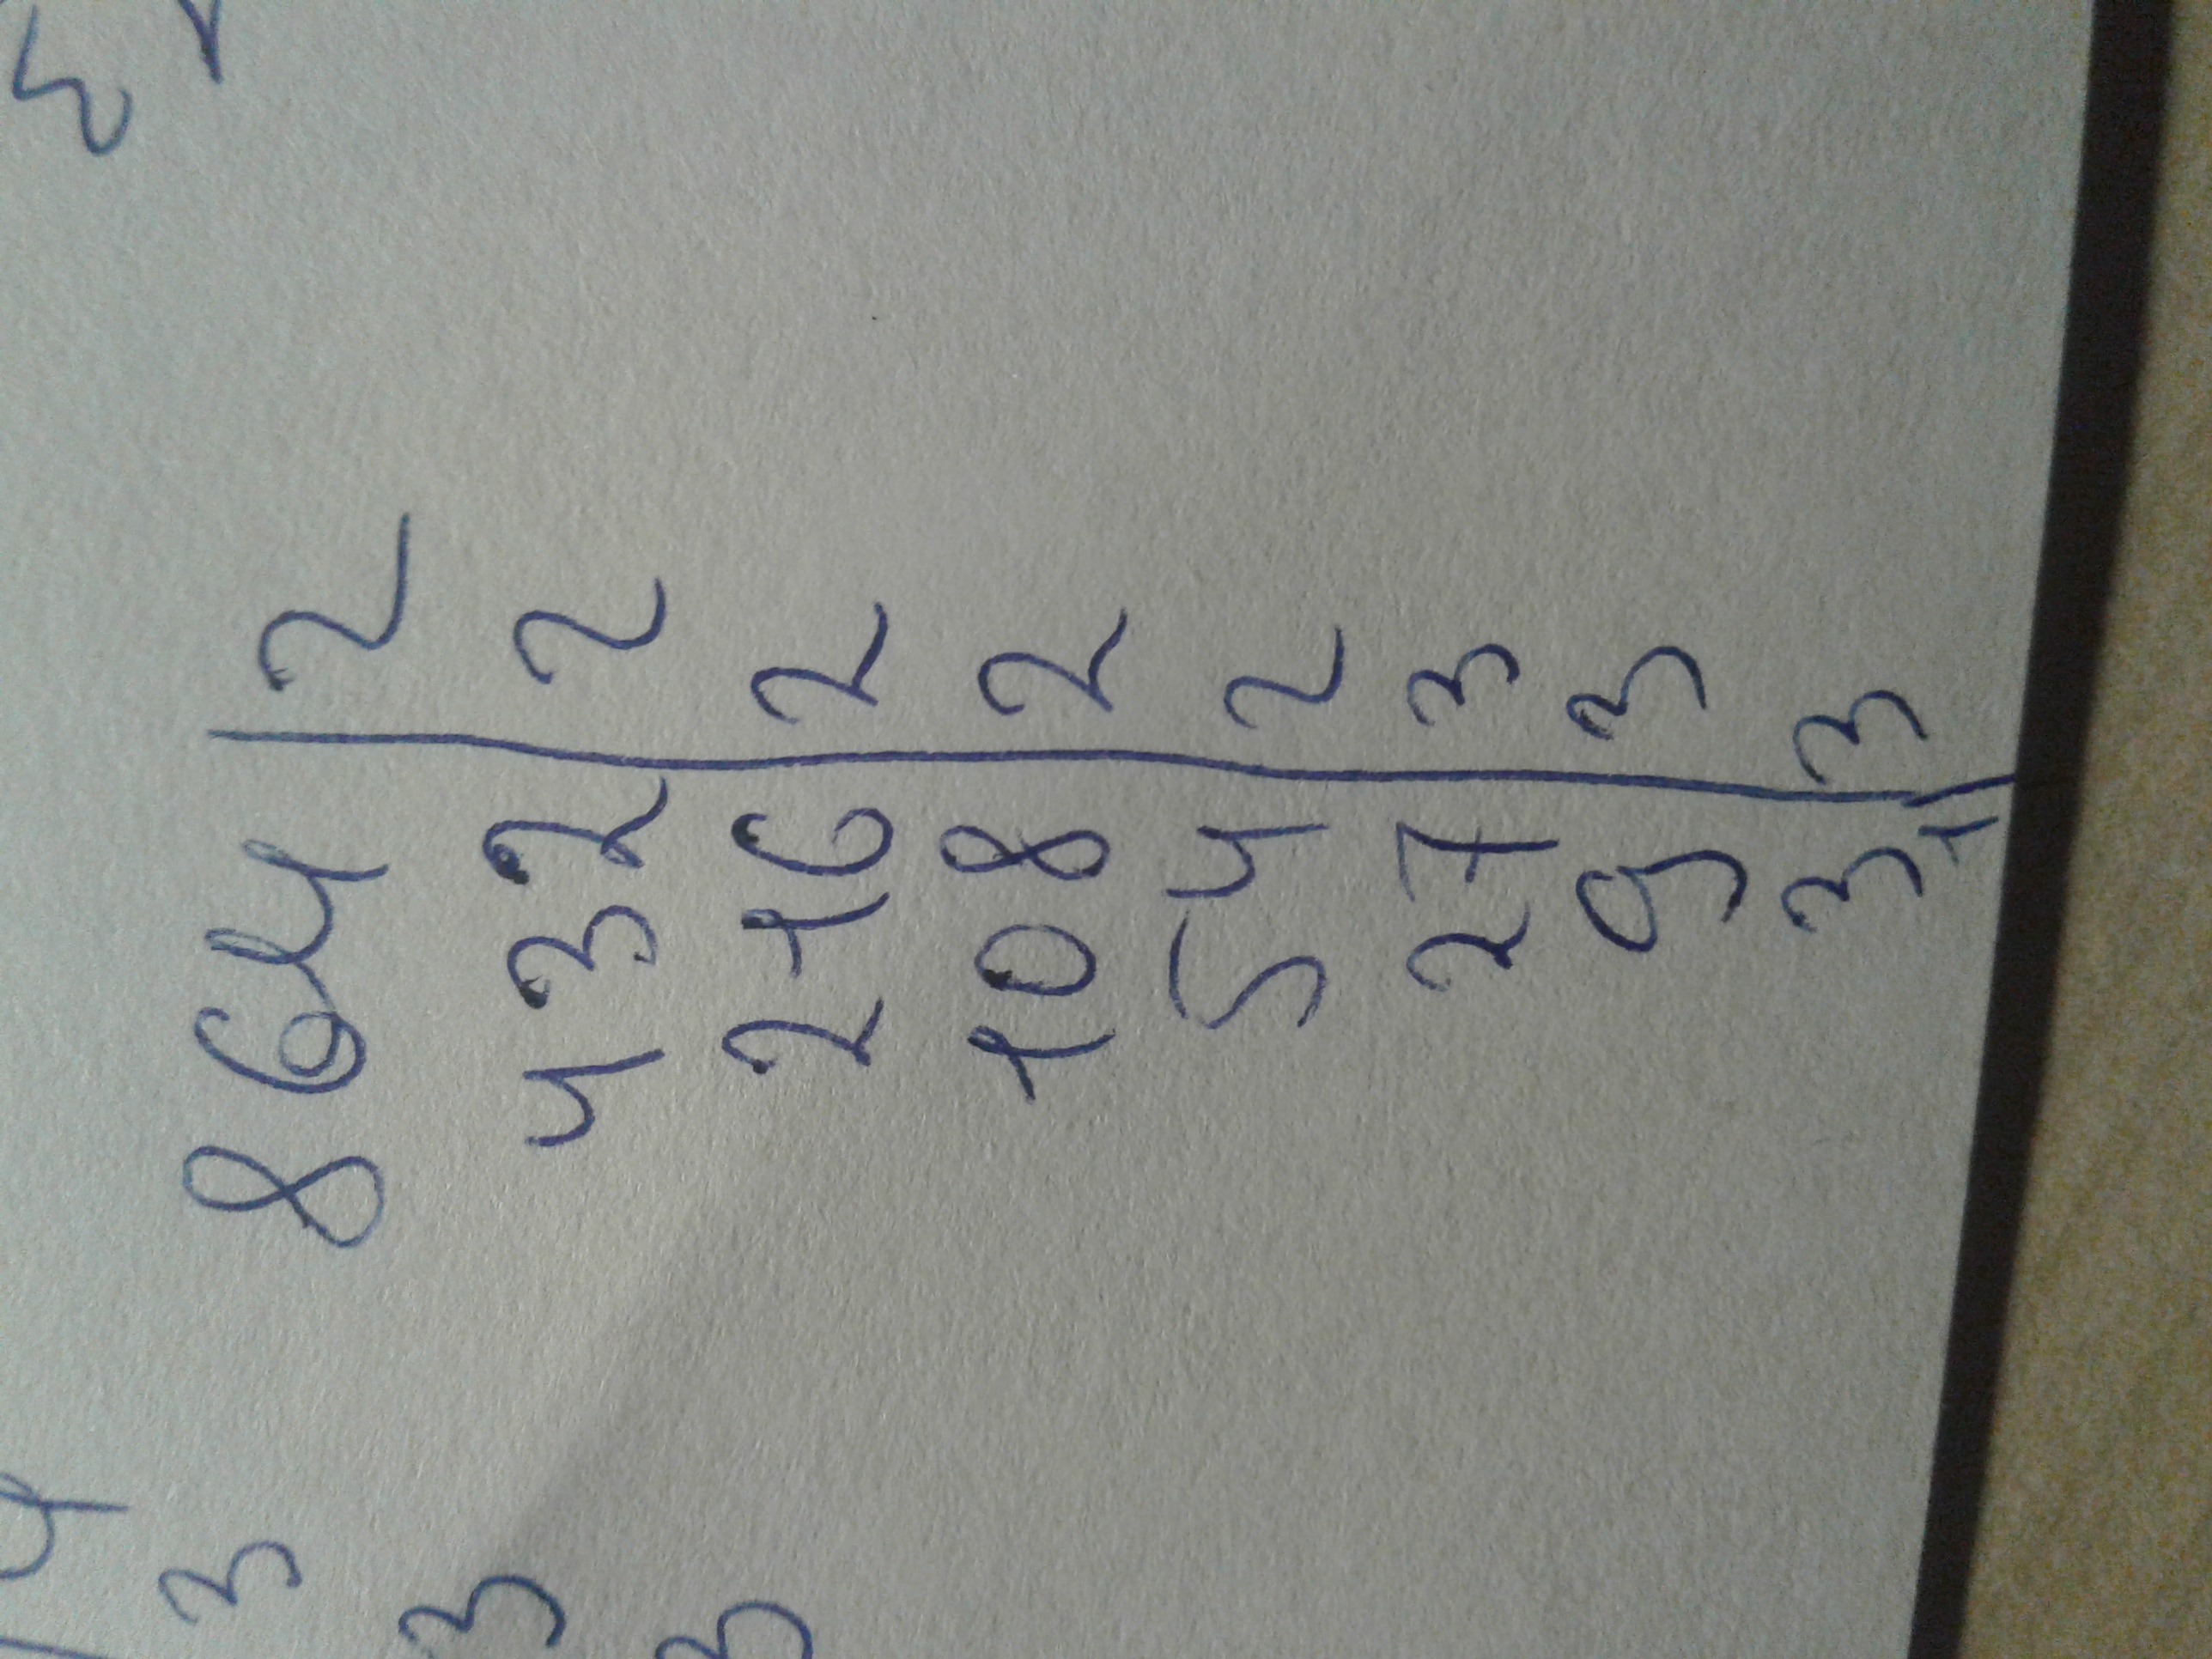 864 | 2
432 | 2
216 | 2
108 | 2
54 | 2
27 | 3
9 | 3
3 | 3
1
4
3
3
3